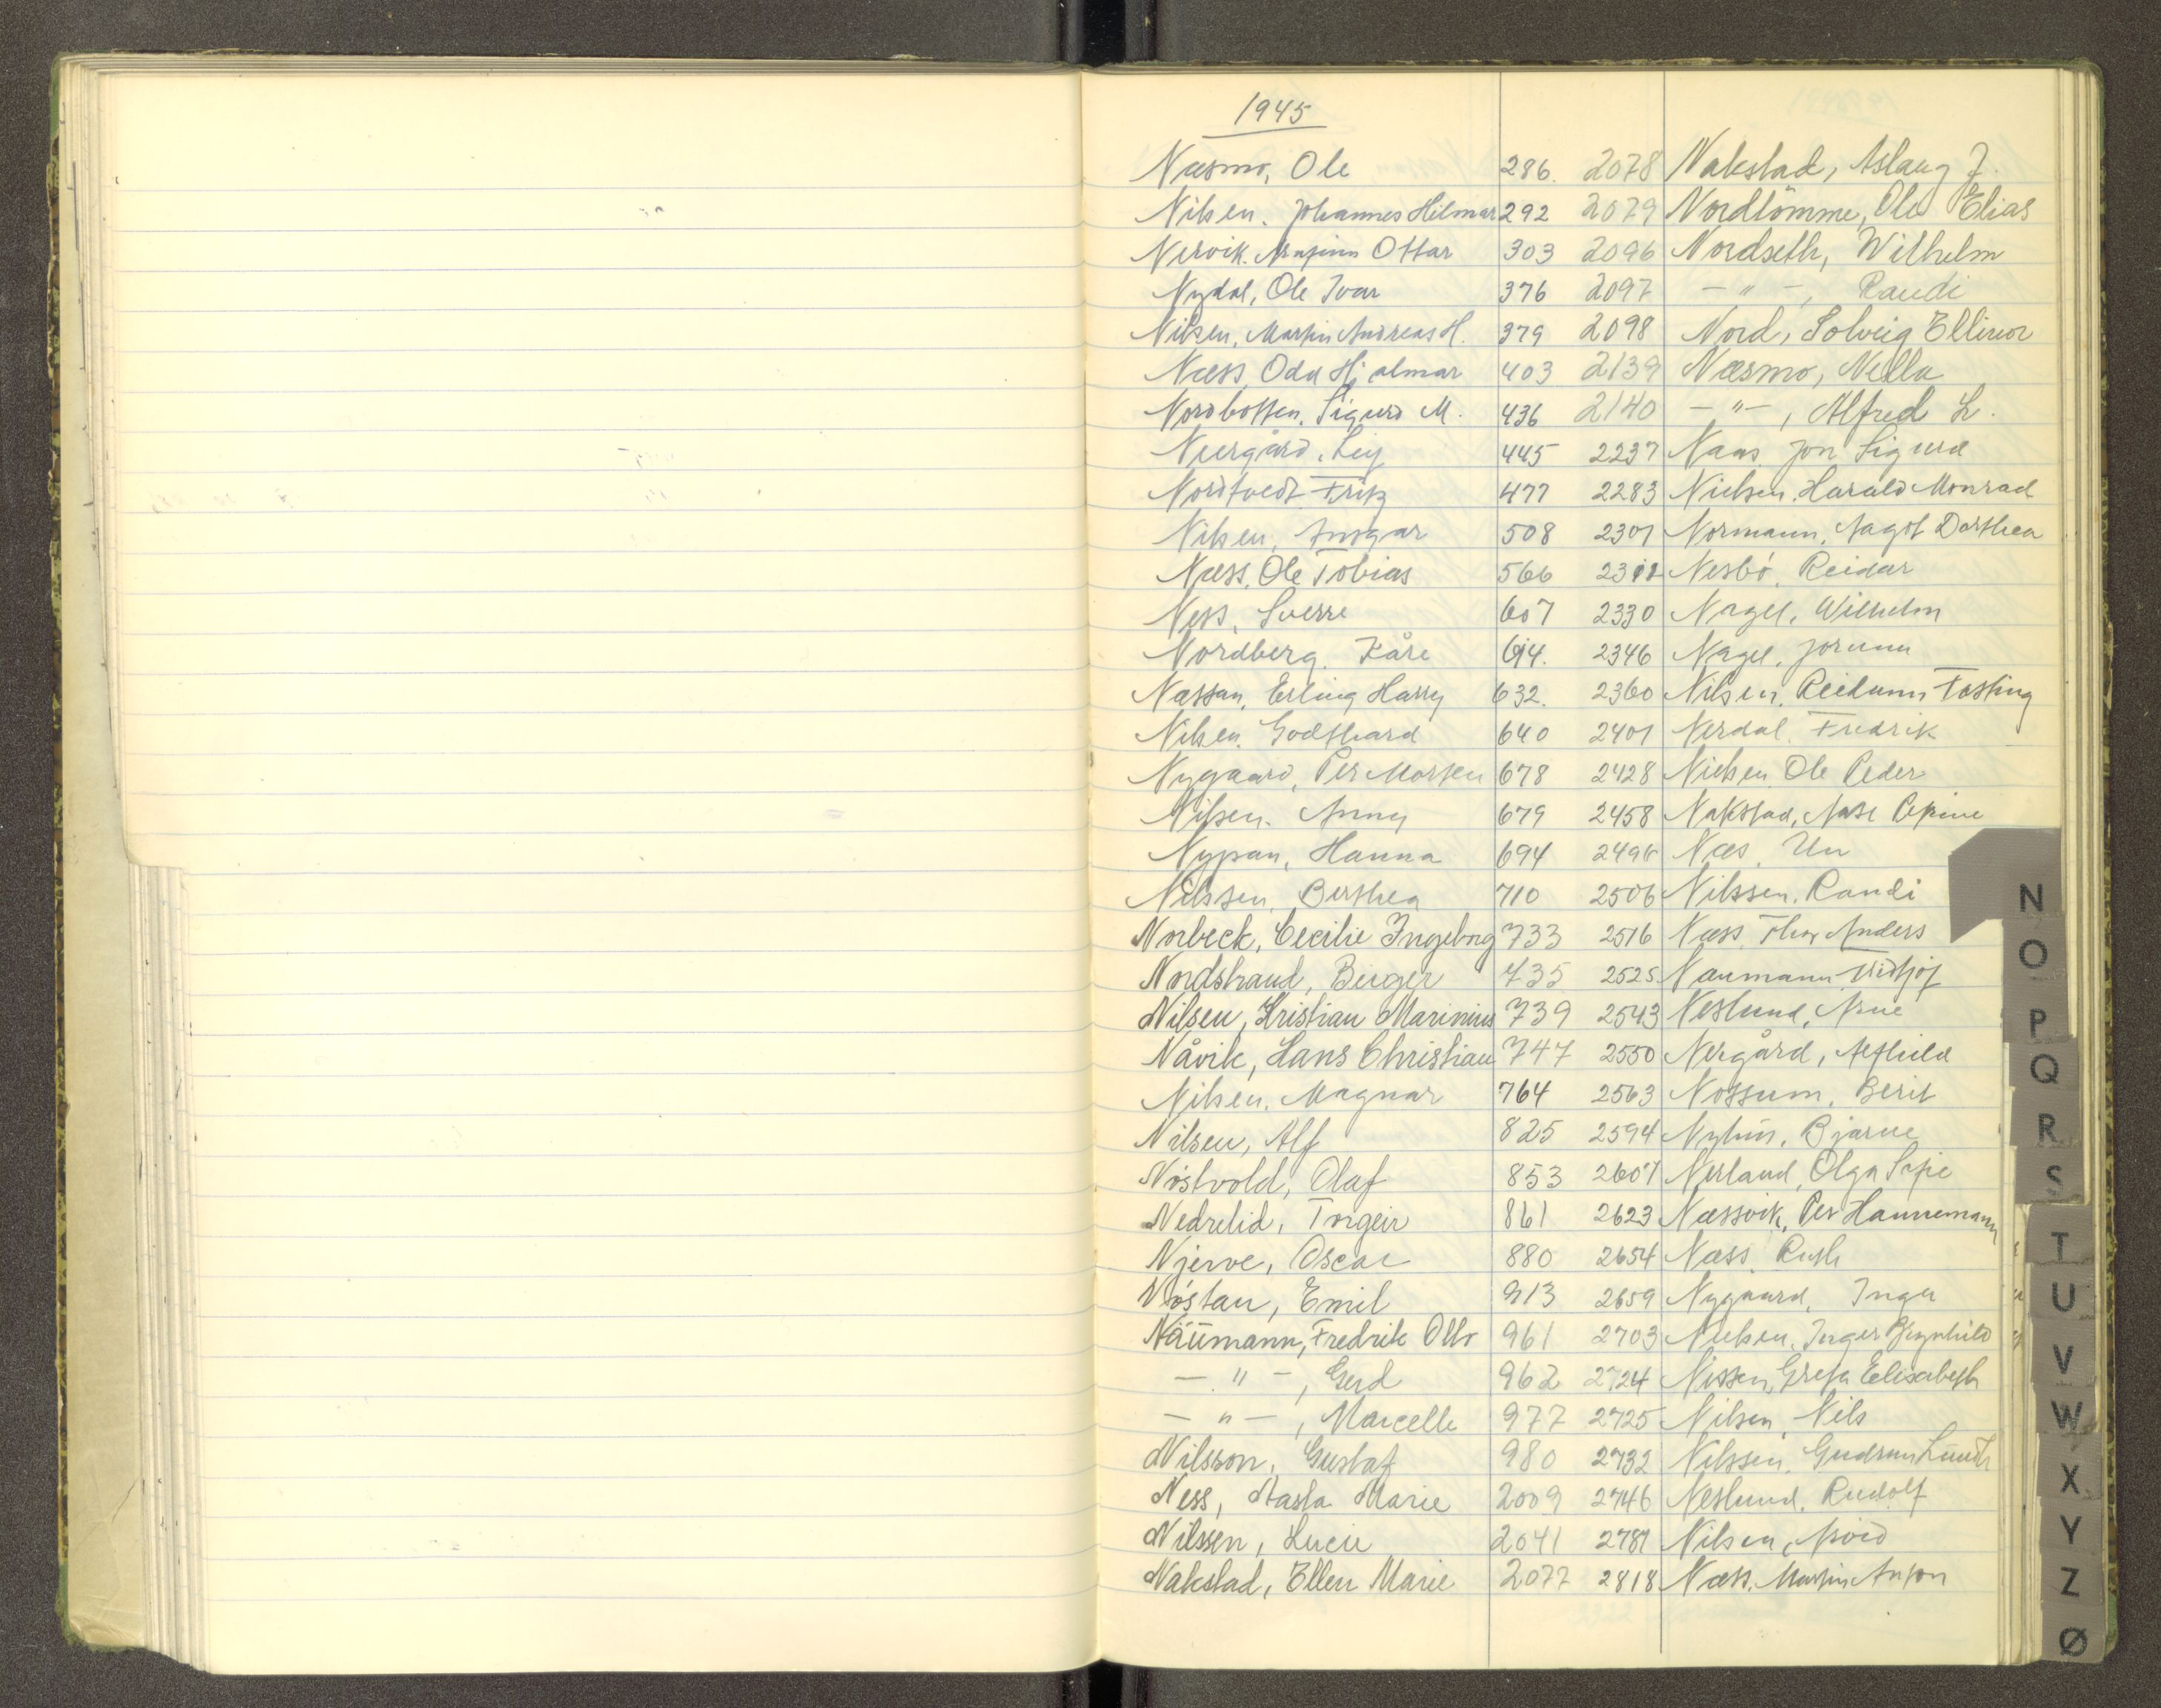 1945
Næsmo, Ole 286. 2078 Nakstad, Aslaug J.
Nilsen. Johannes Hilmar 292 2079 Nordtömme, Ole Elias
Nervik. Arnfinn Ottar 303 2096 Nordseth, Wilhelm
Nydal, Ole Ivar 376 2097 - " -, Randi
Nilsen, Martin Andreas H. 379 2098 Nord, Solveig Ellinor
Næss, Odd Hjalmar 403 2139 Næsmo, Nella
Nordbotten. Sigurd M. 436 2140 - " -, Alfred L.
Neergård, 445 2237 Naas Jon Sigurd
Nordtvedt Fritz 477 2283 Nielsen. Harald Monrad
Nilsen, Ansgar 508 2301 Normann, Aagot Dorthea
Næss, Ole Tobias 566 Nesbö, Reidar
Ness, Sverre 607 2330 Nagel, Wilhelm
Nordberg. Kåre 614. 2346 Nagel, Jorunn
Næssan, Erling Harry 632. 2360 Nilsen, Reidunn Fasting
Nilsen, Godthard 640 2401 Nerdal. Fredrik
Nygaard, Per Morten 678 2428 Nielsen Ole Peder
Nilsen. Anny 679 2458 Nakstad, Aase Pepine
Nypan, Hanna 694 2496 Næs, Un
Nilssen, Berthea 710 2506 Nilssen. Randi
Norbeck, Cecilie Ingeborg 733 2516 Næss, Thor Anders
Nordstrand, Birger 735 2525 Naumann Fridtjof
Nilsen, Kristian Marinius 739 2543 Neslund, Arne
Nåvik, Hans Christian 747 2550 Nergård, Alfhild
Nilsen. Magnar 764 2563 Nossum, Berit
Nilsen, Alf 825 2594 Nyhus, Bjarne
Nöstvold, Olaf 853 2607 Nerland, Olga Sofie
Nedrelid, Torgeir 861 2623 Næssvik, Per Hannemann
Njerve, Oscar 880 2654 Næss. Ruth
Nöstan, Emil 913 2659 Nygaard, Inga
Naumann, Fredrik Otto 961 2703 Nielsen. Inger Brynhild
- " -, Gerd 962 2724 Nissen, Greta Elisabeth
- " -, Marcelle 977 2725 Nilsen, Nils
Nilsson, Gustaf 980 2732 Nilssen, Gudrun Lundh
Ness, Aasta Marie 2009 2746 Neslund. Rudolf
Nilssen, Lucie 2041 2781 Nilsen, Arvid
Nakstad, Ellen Marie 2077 2818 Næss. Martin Anton
N
O
P
Q
R
S
T
U
V
W
X
Y
Z
Ø